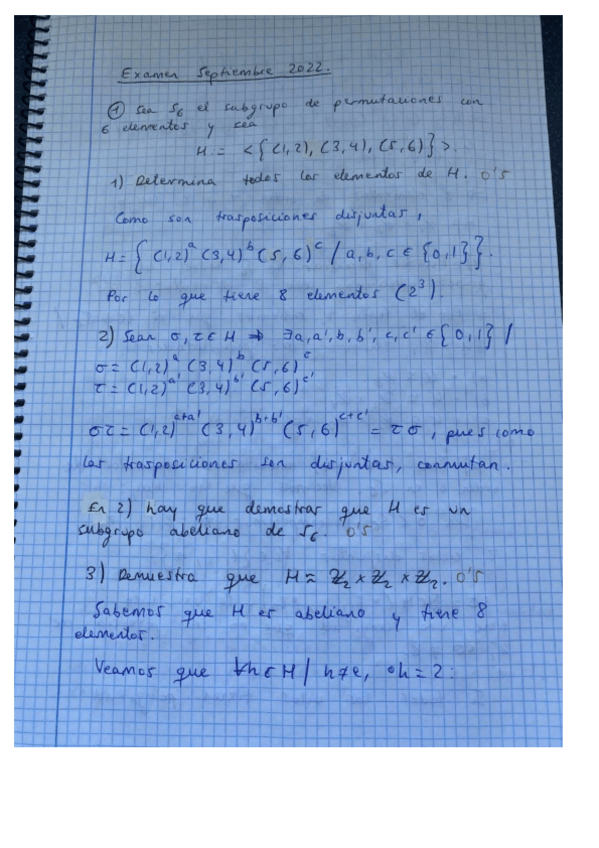 Examen Septiembre 2022.
① Sea S₆ el subgrupo de permutaciones con
6 elementos y sea
H = <{(1,2), (3,4), (5,6)}>.
1) Determina todos los elementos de H. 0'5
Como son trasposiciones disjuntas,
H = {(1,2)^a (3,4)^b (5,6)^c / a, b, c ∈ {0,1}}.
Por lo que tiene 8 elementos (2³).
2) Sean σ, τ ∈ H ⇒ ∃a, a', b, b', c, c' ∈ {0,1} /
σ = (1,2)^a (3,4)^b (5,6)^c
τ = (1,2)^a' (3,4)^b' (5,6)^c'
στ = (1,2)^a+a' (3,4)^b+b' (5,6)^c+c' = τσ, pues como
las trasposiciones son disjuntas, conmutan.
En 2) hay que demostrar que H es un
subgrupo abeliano de S₆. 0'5
3) Demuestra que H ≈ ℤ₂ × ℤ₂ × ℤ₂. 0'5
Sabemos que H es abeliano y tiene 8
elementos.
Veamos que ∀h ∈ H / h ≠ e, °h = 2: